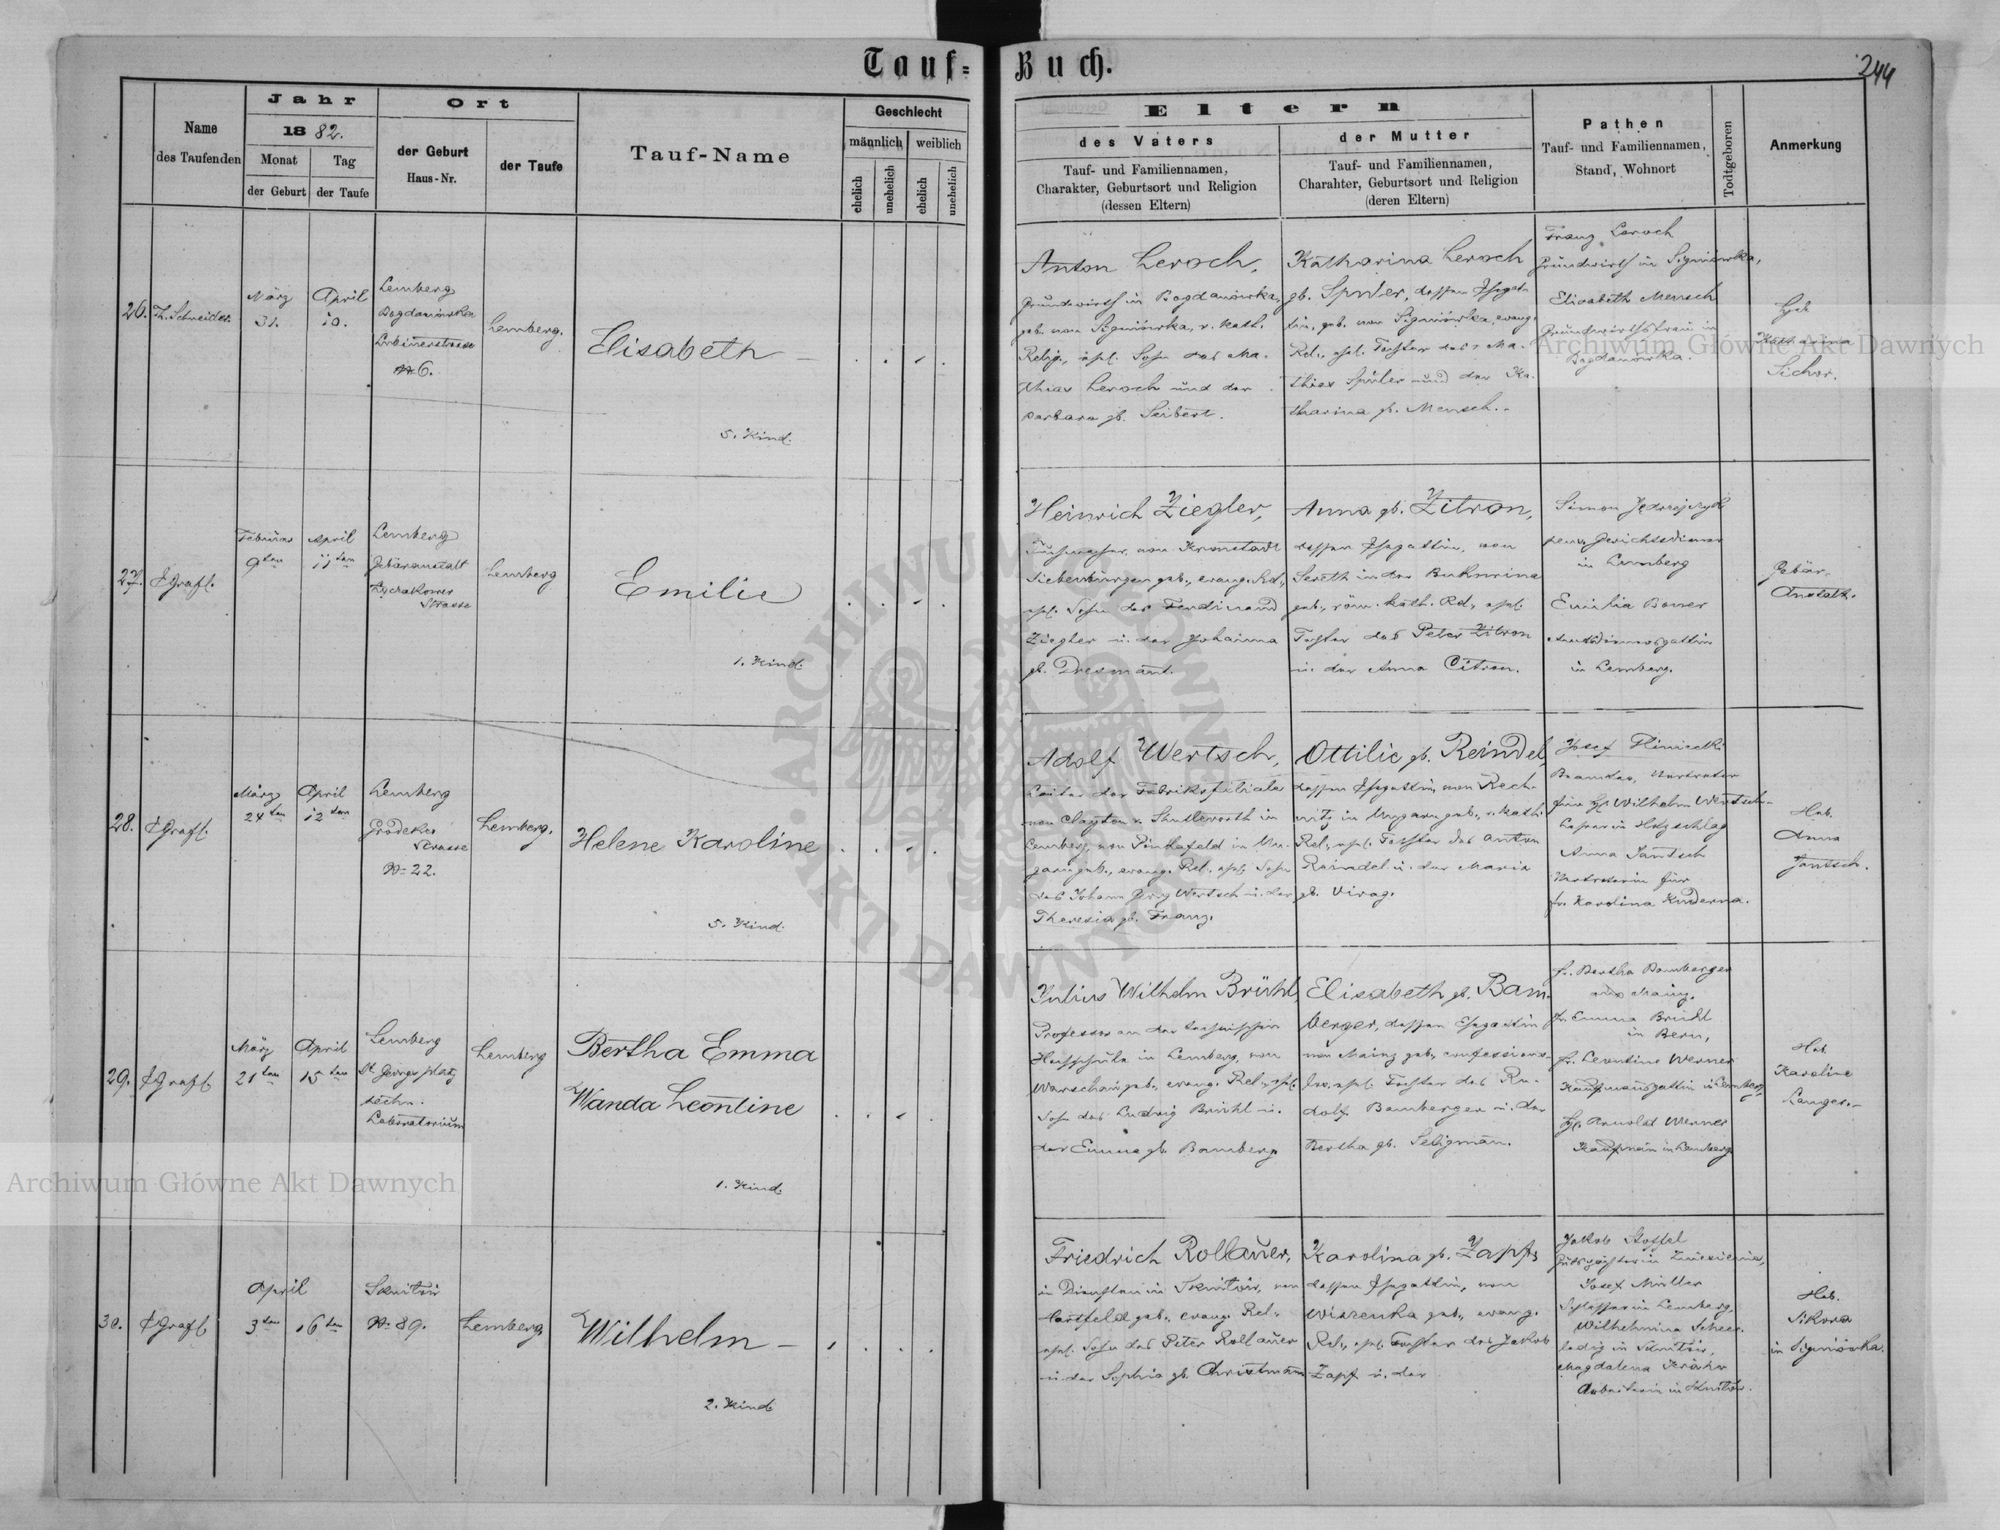 Tauf=Buch.
244
Name des Taufenden
Jahr
1882.
Monat
Tag
der Geburt
der Taufe
Ort
der Geburt
Haus-Nr.
der Taufe
Tauf-Name
Geschlecht
männlich
weiblich
ehelich
unehelich
ehelich
unehelich
Eltern
des Vaters
Tauf- und Familiennamen,
Charakter, Geburtsort und Religion
(dessen Eltern)
der Mutter
Tauf- und Familiennamen,
Charahter, Geburtsort und Religion
(deren Eltern)
Pathen
Tauf- und Familiennamen,
Stand, Wohnort
Todtgeboren
Anmerkung
26.
Th. Schneider
März
31.
April
10.
Lemberg
Bogdanówka
6.
Lemberg.
Elisabeth —
5. Kind.
Anton Leroch,
Grundwirth in Bogdanówka,
geb. von Signiówka, r. kath.
Relig., ehel. Sohn des Ma-
thias Leroch und der
Barbara gb. Seibert.
Katharina Leroch
gb. Spuler, dessen Ehegat-
tin, geb. von Signiówka, evang.
Rel., ehel. Tochter des Ma-
thias Spuler und der Ka-
tharina gb. Mensch.
Franz Leroch
Grundwirth in Signiówka,
Elisabeth Mensch
Grundwirthsfrau in
Bogdanówka.
Katharina
Sichor.
27.
Grafl.
Februar
9ten
April
11ten
Lemberg
Gebäranstalt
Lyczakower
Strasse
Lemberg
Emilie
1. Kind.
Heinrich Ziegler,
von Kronstadt
Siebenbürgen geb., evang. Rel.,
ehel. Sohn des Ferdinand
Ziegler u. der Johanna
gb. Dresmant.
Anna gb. Zitron,
dessen Ehegattin, von
Sereth in der Bukowina
geb., röm. kath. Rel., ehel.
Tochter des Peter Zitron
u. der Anna Citron.
Simon
pens. Gerichtsdiener
in Lemberg
Emilia
Amtsdienersgattin
in Lemberg.
Gebär-
Anstalt.
28.
Grafl.
März
24ten
April
12ten
Lemberg
Grodeker
Strasse
No 22.
Lemberg.
Helene Karoline
5. Kind.
Adolf Wertsch,
Leiter der Fabriksfiliale
von Clayton & Shuttleworth in
Lemberg, von Pinkafeld in Un-
garn geb., evang. Rel., ehel. Sohn
des Johann Georg Wertsch u. der
Theresia gb. Franz.
Ottilie gb. Reindel,
dessen Ehegattin, von Rech-
nitz in Ungarn geb., r. kath.
Rel., ehel. Tochter des Anton
Reindel u. der Maria
gb. Virag.
Josef
Beamter, Vertreter
für H. Wilhelm Wertsch
Anna Jantsch
Vertreterin für
Fr. Karolina Kuderna.
Heb.
Anna
Jantsch.
29.
Grafl.
März
21ten
April
15ten
Lemberg
St. Georgs platz
techn.
Laboratorium
Lemberg
Bertha Emma
Wanda Leontine
1. Kind.
Julius Wilhelm Brühl,
Professor an der technischen
Hochschule in Lemberg, von
Warschau geb., evang. Rel., ehel.
Sohn des Ludwig Brühl u.
der Emma gb. Bamberg
Elisabeth gb. Bam-
berger, dessen Ehegattin
von Mainz geb., confessions-
los, ehel. Tochter des Ru-
dolf Bamberger u. der
Bertha gb. Seligman.
Fr. Bertha Bamberger
Mainz.
Fr. Emma Brühl
in Bern,
Fr. Leontine Werner
Kaufmannsgattin in Lemberg,
H. Arnold Werner
Kaufmann in Lemberg
Heb.
Karoline
Langer.
30.
Grafl.
April
3ten
16ten
Sknilów
No 89.
Lemberg
Wilhelm —
2. Kind.
Friedrich Rollauer,
in Diensten in Sknilów, von
Hartfeld geb., evang. Rel.,
ehel. Sohn des Peter Rollauer
u. der Sophia gb. Christmann
Karolina gb. Zapf,
dessen Ehegattin, von
Wiszenka geb., evang.
Rel., ehel. Tochter des Jakob
Zapf u. der
Jakob
Josef Müller
Schlosser in Lemberg,
Wilhelmina
ledig in Sknilów,
Magdalena
Arbeiterin in Sknilów.
Heb.
Sikora
in Signiówka.
Archiwum Główne Akt Dawnych
Archiwum Główne Akt Dawnych
ARCHIWUM GŁÓWNE AKT DAWNYCH